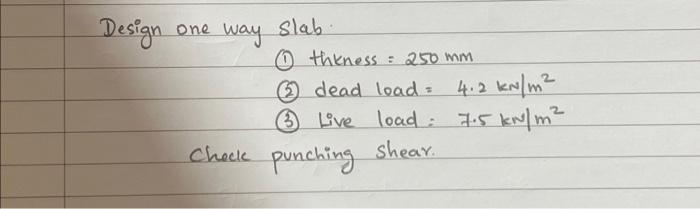 Design one way slab.
① thkness = 250 mm
② dead load = 4.2 kN/m²
③ Live load = 7.5 kN/m²
Check punching shear.